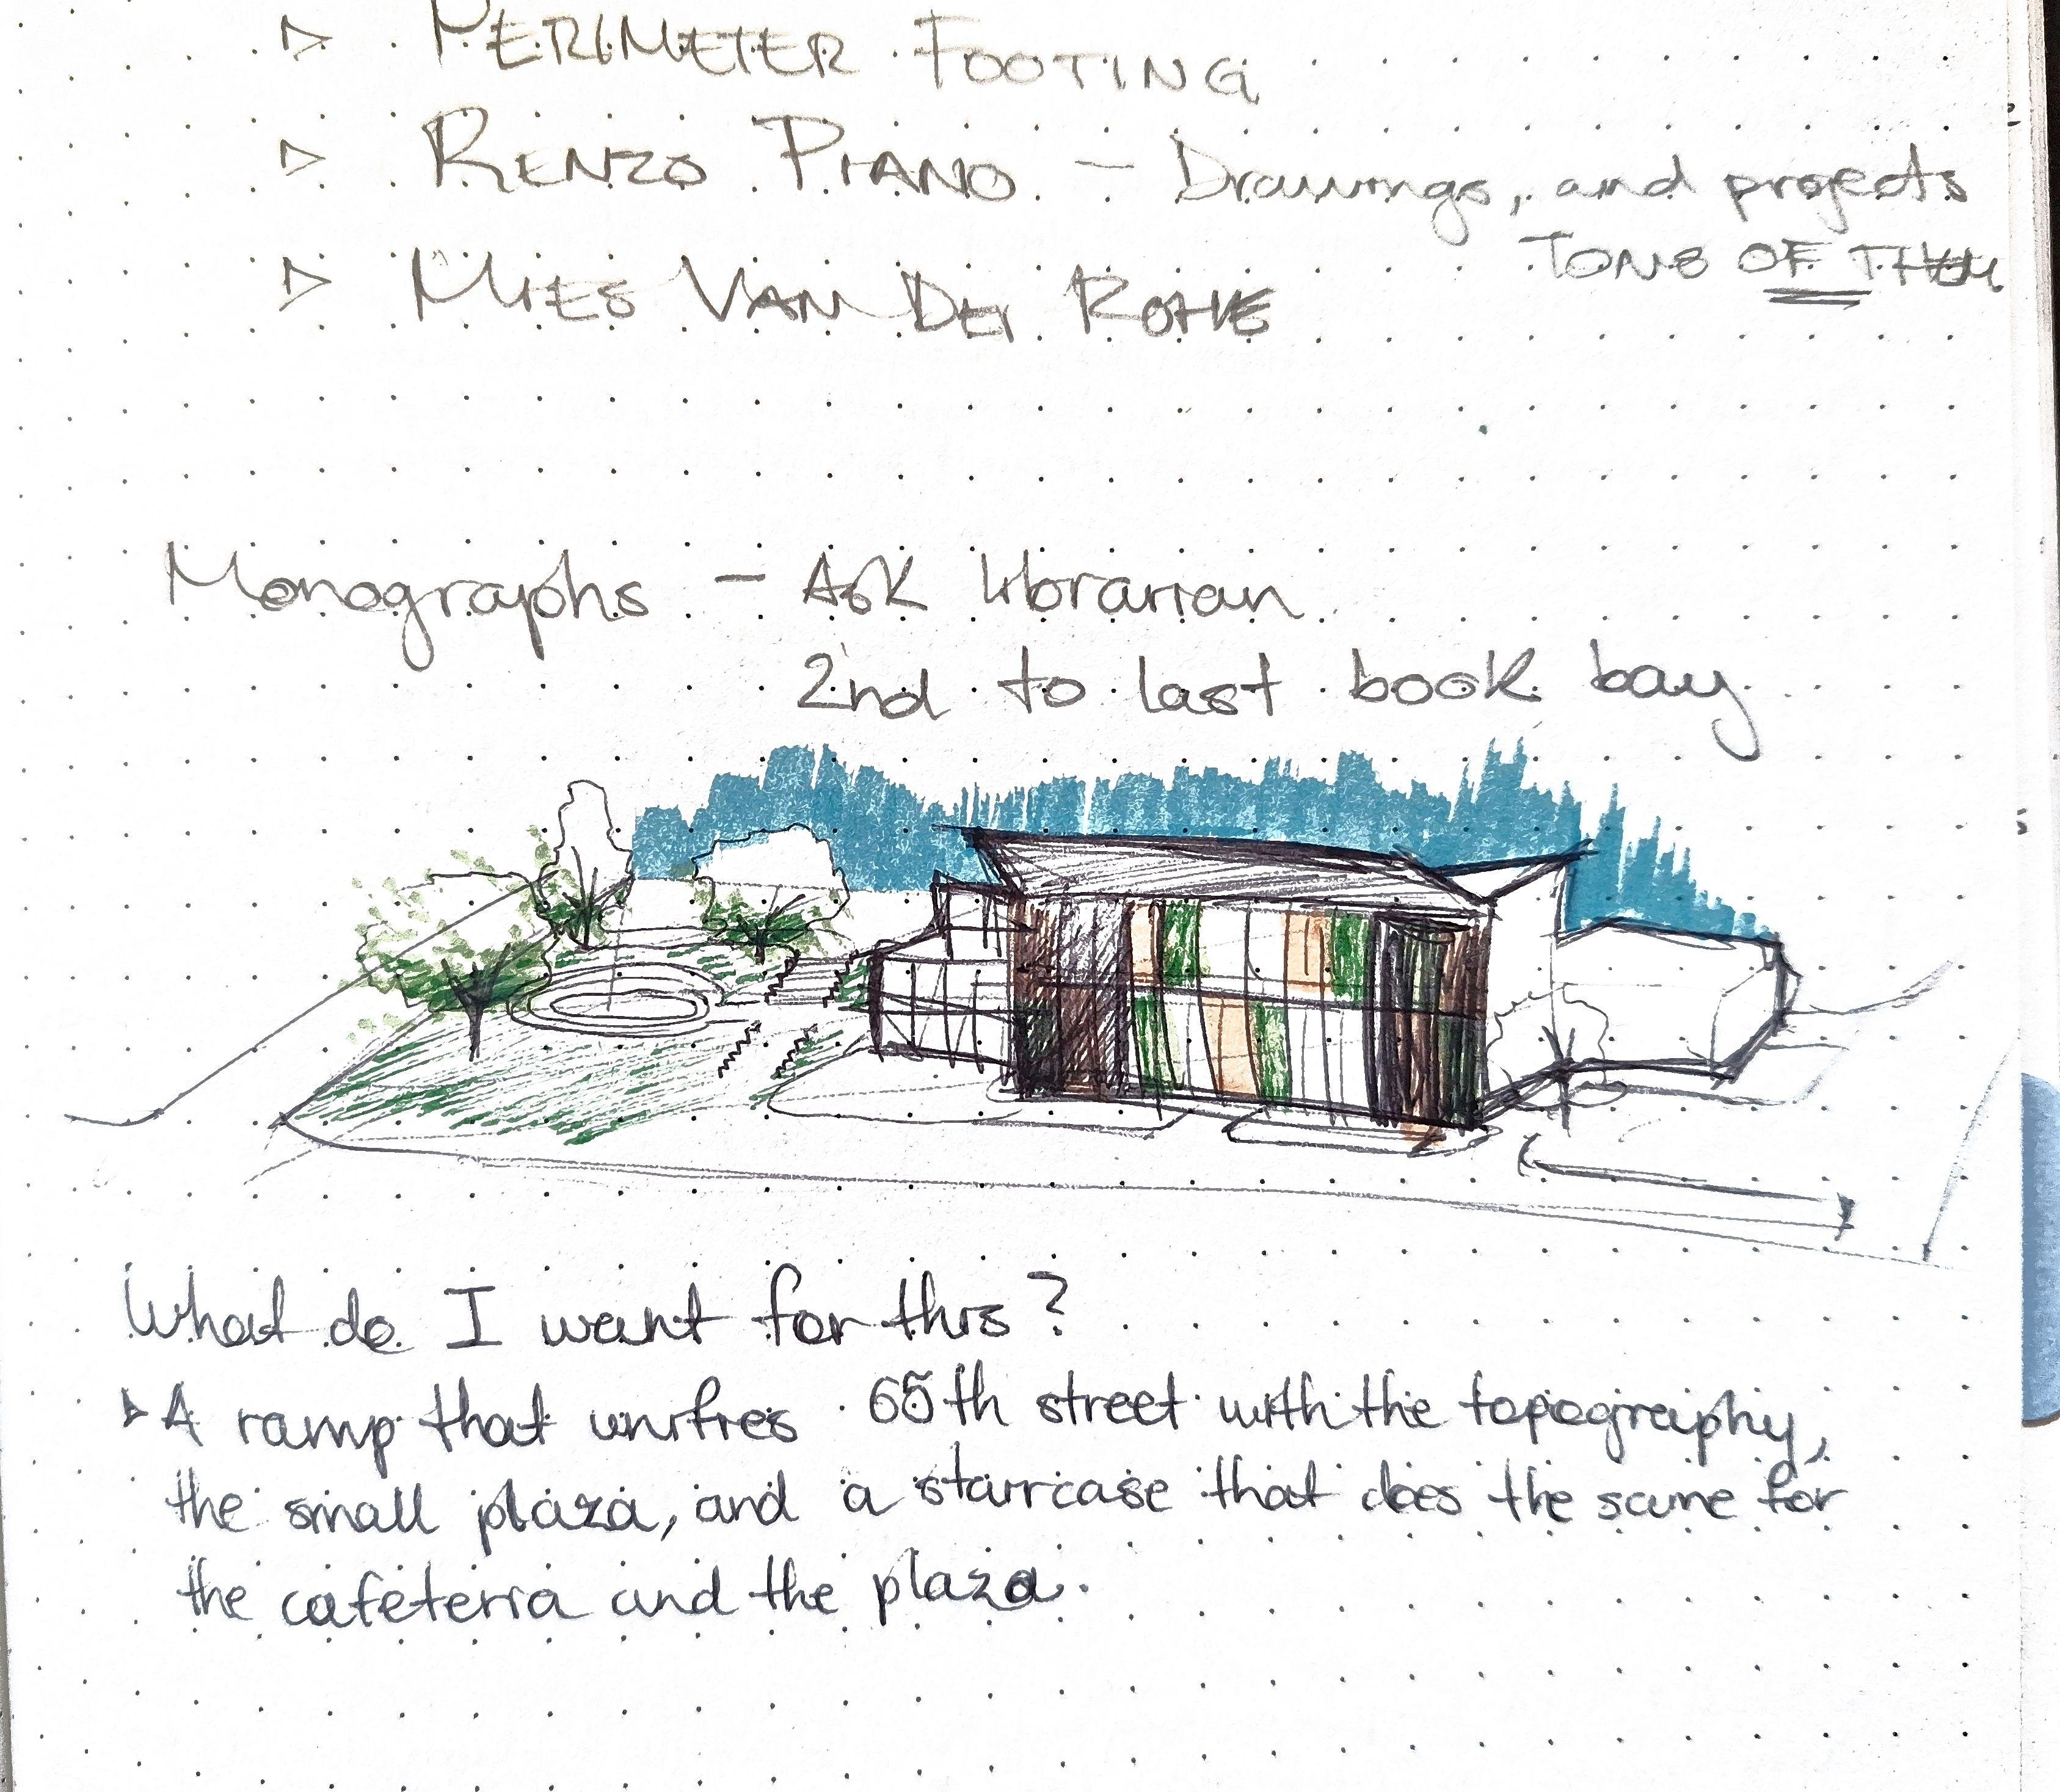 ▷ PERIMETER FOOTING
▷ RENZO PIANO - Drawings, and projects
TONS OF THEM
▷ MIES VAN DER ROHE
Monographs - Ask librarian
2nd to last book bay
What do I want for this?
▷ A ramp that unifies 65th street with the topography,
the small plaza, and a staircase that does the same for
the cafeteria and the plaza.